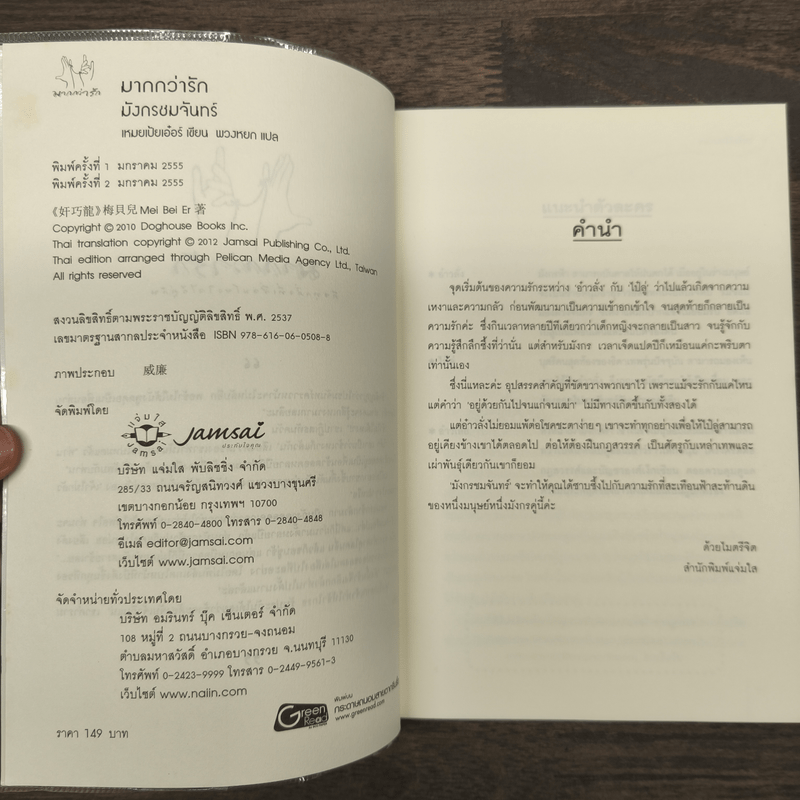 มากกว่ารัก
มากกว่ารัก
มังกรชมจันทร์
เหมยเป้ยเอ๋อร์ เขียน พวงหยก แปล
พิมพ์ครั้งที่ 1 มกราคม 2555
พิมพ์ครั้งที่ 2 มกราคม 2555
《奸巧龍》梅貝兒 Mei Bei Er 著
Copyright © 2010 Doghouse Books Inc.
Thai translation copyright © 2012 Jamsai Publishing Co., Ltd.
Thai edition arranged through Pelican Media Agency Ltd., Taiwan
All rights reserved
สงวนลิขสิทธิ์ตามพระราชบัญญัติลิขสิทธิ์ พ.ศ. 2537
เลขมาตรฐานสากลประจำหนังสือ ISBN 978-616-06-0508-8
ภาพประกอบ 威廉
จัดพิมพ์โดย
แจ่มใส
Jamsai
Jamsai
บริษัท แจ่มใส พับลิชชิ่ง จำกัด
285/33 ถนนจรัญสนิทวงศ์ แขวงบางขุนศรี
เขตบางกอกน้อย กรุงเทพฯ 10700
โทรศัพท์ 0-2840-4800 โทรสาร 0-2840-4848
อีเมล์ editor@jamsai.com
เว็บไซต์ www.jamsai.com
จัดจำหน่ายทั่วประเทศโดย
บริษัท อมรินทร์ บุ๊ค เซ็นเตอร์ จำกัด
108 หมู่ที่ 2 ถนนบางกรวย-จงถนอม
ตำบลมหาสวัสดิ์ อำเภอบางกรวย จ.นนทบุรี 11130
โทรศัพท์ 0-2423-9999 โทรสาร 0-2449-9561-3
เว็บไซต์ www.naiin.com
Green Read
พิมพ์บน
กระดาษถนอมสายตากรีนรีด
www.greenread.com
ราคา 149 บาท
คำนำ
จุดเริ่มต้นของความรักระหว่าง 'อ๋าวลั่ง' กับ 'ไป๋ลู่' ว่าไปแล้วเกิดจากความ
เหงาและความกลัว ก่อนพัฒนามาเป็นความเข้าอกเข้าใจ จนสุดท้ายก็กลายเป็น
ความรักค่ะ ซึ่งกินเวลาหลายปีทีเดียวกว่าเด็กหญิงจะกลายเป็นสาว จนรู้จักกับ
ความรู้สึกลึกซึ้งที่ว่านั่น แต่สำหรับมังกร เวลาเจ็ดแปดปีก็เหมือนแค่กะพริบตา
เท่านั้นเอง
ซึ่งนี่แหละค่ะ อุปสรรคสำคัญที่ขัดขวางพวกเขาไว้ เพราะแม้จะรักกันแค่ไหน
แต่คำว่า 'อยู่ด้วยกันไปจนแก่จนเฒ่า' ไม่มีทางเกิดขึ้นกับทั้งสองได้
แต่อ๋าวลั่งไม่ยอมแพ้ต่อโชคชะตาง่ายๆ เขาจะทำทุกอย่างเพื่อให้ไป๋ลู่สามารถ
อยู่เคียงข้างเขาได้ตลอดไป ต่อให้ต้องฝืนกฎสวรรค์ เป็นศัตรูกับเหล่าเทพและ
เผ่าพันธุ์เดียวกันเขาก็ยอม
'มังกรชมจันทร์' จะทำให้คุณได้ซาบซึ้งไปกับความรักที่สะเทือนฟ้าสะท้านดิน
ของหนึ่งมนุษย์หนึ่งมังกรคู่นี้ค่ะ
ด้วยไมตรีจิต
สำนักพิมพ์แจ่มใส